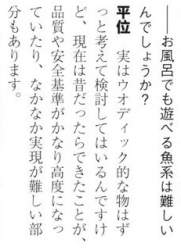 ――お風呂でも遊べる魚系は難しい
んでしょうか?
平位　実はウオディック的な物はず
っと考えて検討してはいるんですけ
ど、現在は昔だったらできたことが、
品質や安全基準がかなり高度になっ
ていたり、なかなか実現が難しい部
分もあります。